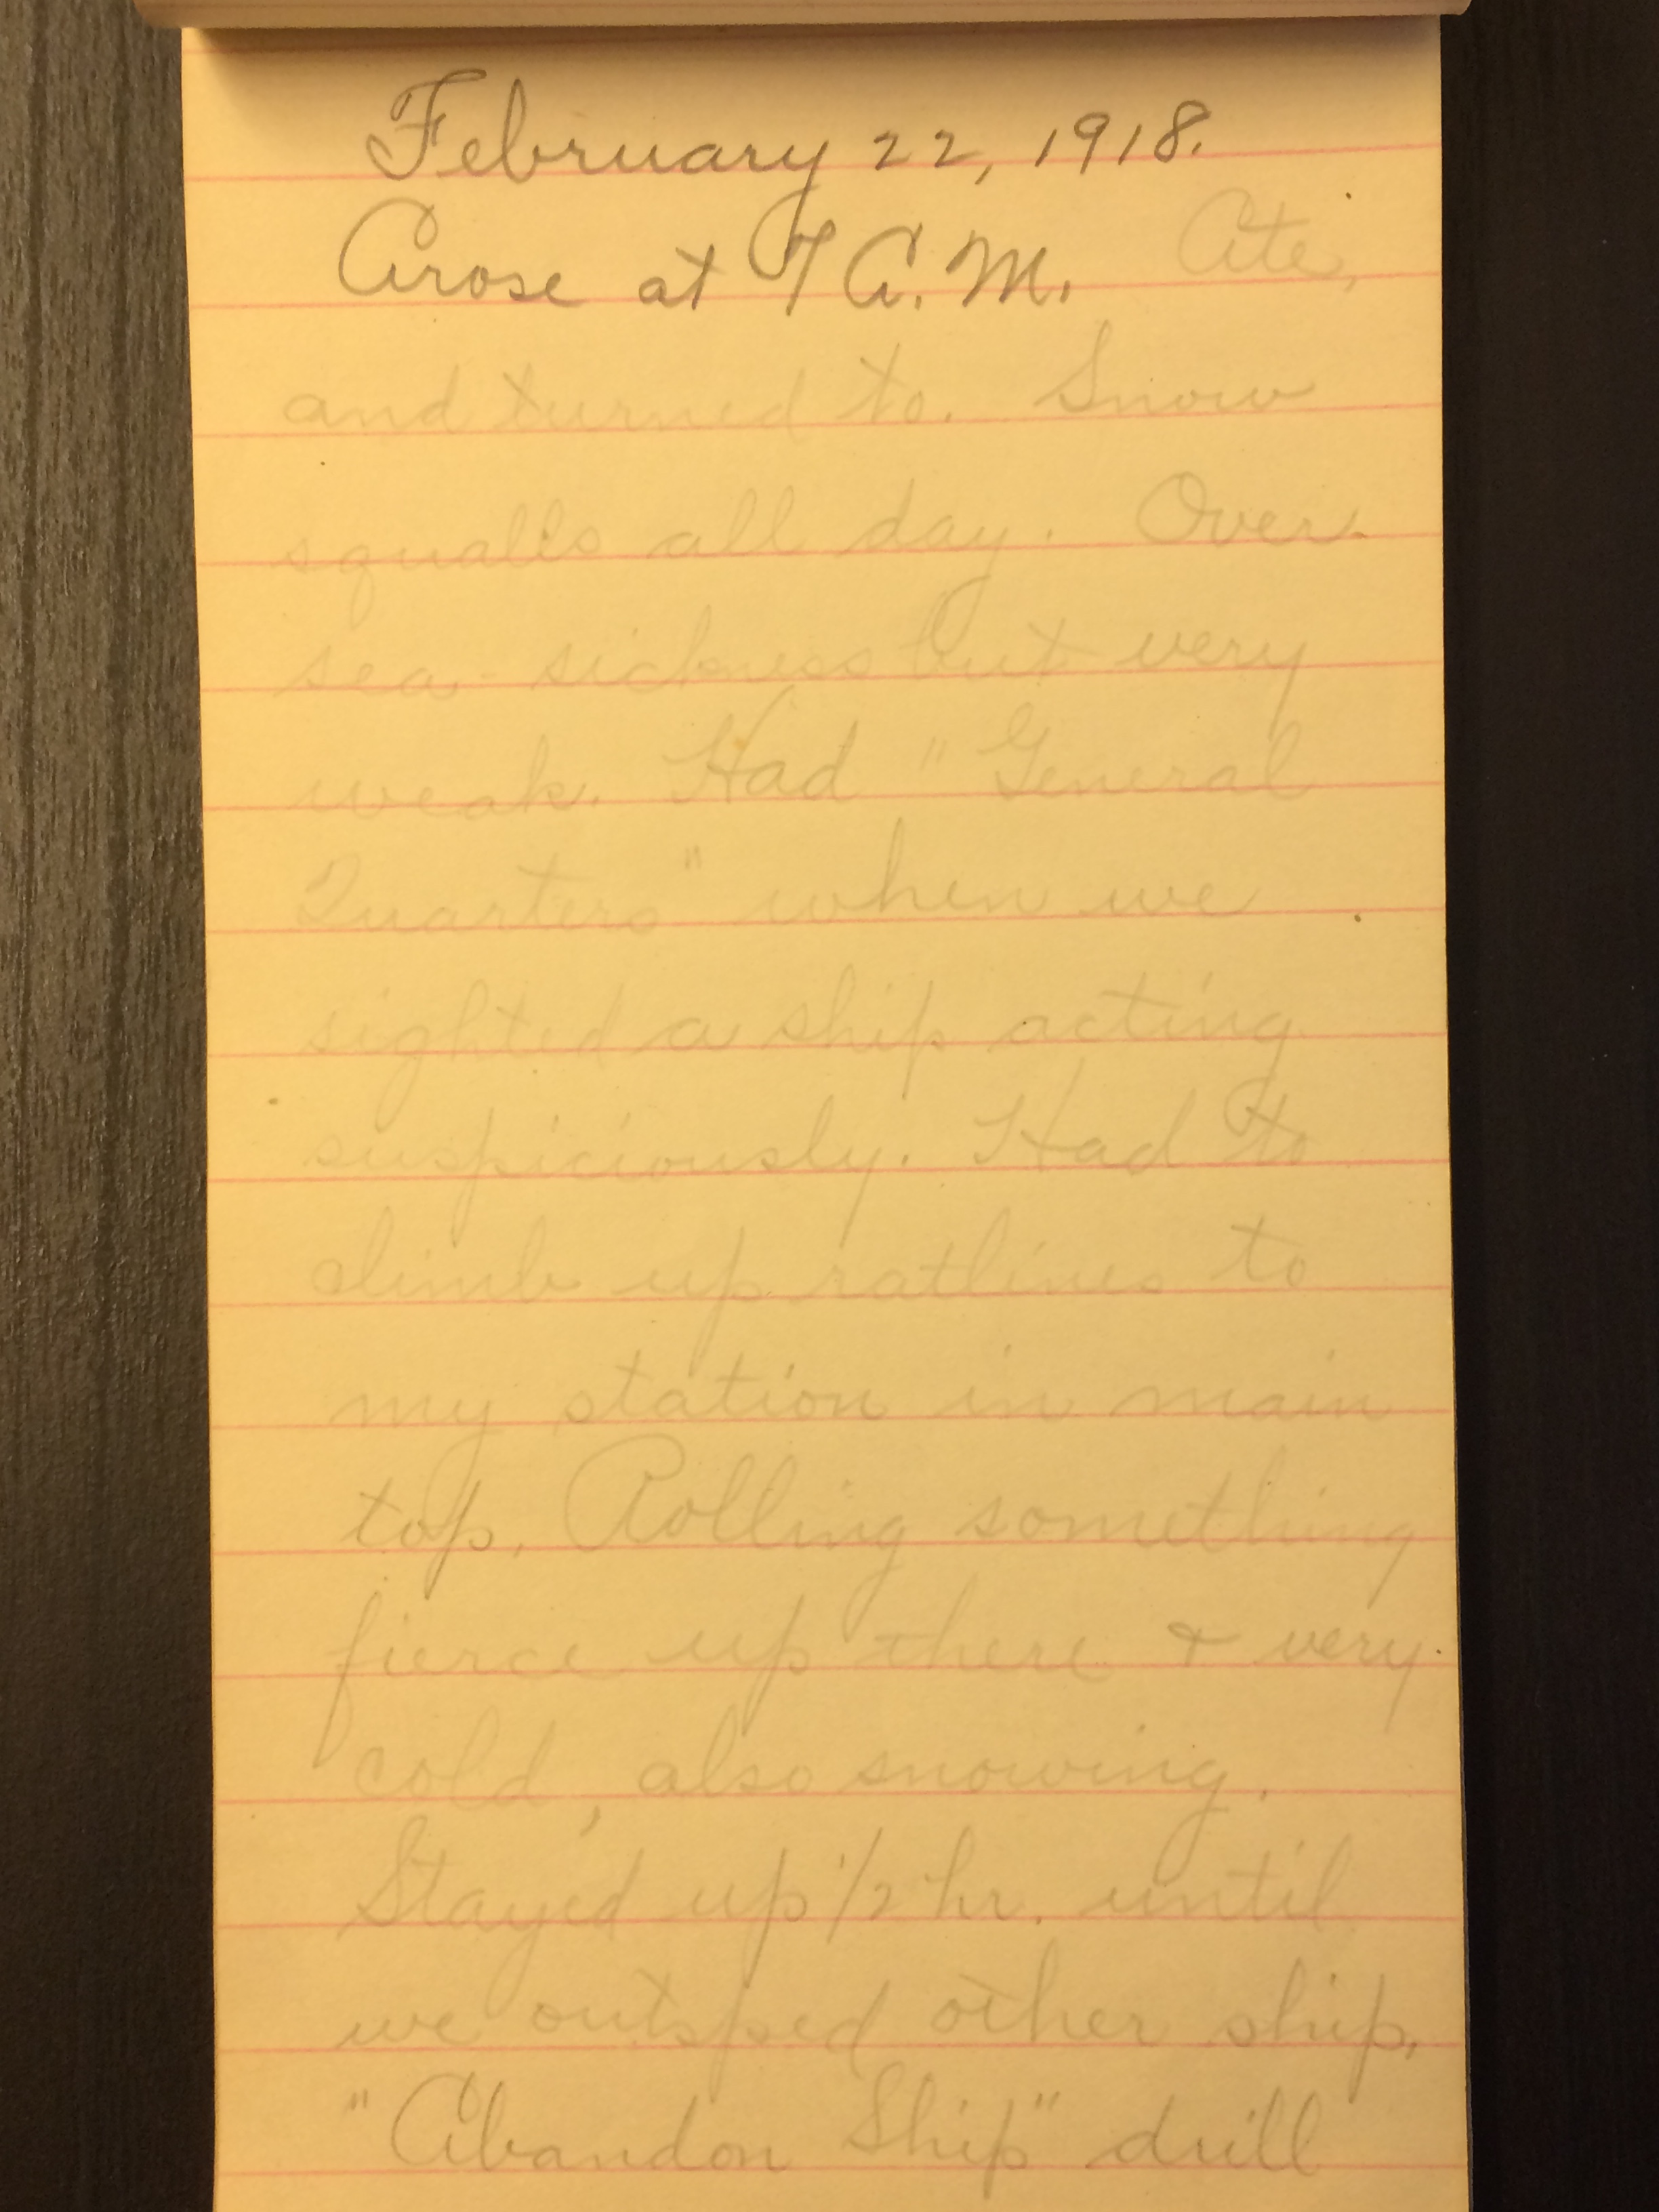 February 22, 1918.
Arose at 7 A.M. Ate,
and turned to. Snow
squalls all day. Over
sea-sickness but very
weak. Had "General
Quarters" when we
sighted a ship acting
suspiciously. Had to
climb up ratlines to
my station in main
top. Rolling something
fierce up there & very
cold, also snowing.
Stayed up 1/2 hr. until
we outsped other ship.
"Abandon Ship" drill